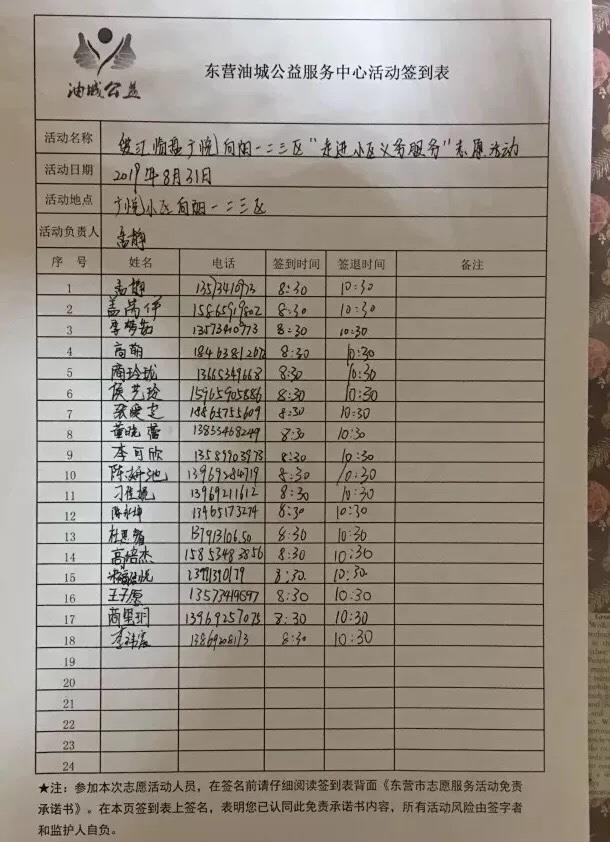 油城公益
东营油城公益服务中心活动签到表
活动名称 向阳一二三区"走进小区义务服务"志愿活动
活动日期 2019年8月31日
活动地点 广悦小区向阳一二三区
活动负责人 孟静
序 号 姓名 电话 签到时间 签退时间 备注
1 孟静 8:30 10:30
2 15865919802 8:30 10:30
3 李梦茹 13573410973 8:30 10:30
4 高萌 8:30 10:30
5 商玲珑 13665349668 8:30 10:30
6 侯艺玲 15965905886 8:30 10:30
7 18865755609 8:30 10:30
8 董晓蕾 13853468249 8:30 10:30
9 李可欣 13589903973 8:30 10:30
10 13969284719 8:30 10:30
11 13969211612 8:30 10:30
12 13465173274 8:30 10:30
13 8:30 10:30
14 高培杰 15853483856 8:30 10:30
15 8:30 10:30
16 王子愿 8:30 10:30
17 13969257075 8:30 10:30
18 8:30 10:30
19
20
21
22
23
24
★注：参加本次志愿活动人员，在签名前请仔细阅读签到表背面《东营市志愿服务活动免责
承诺书》。在本页签到表上签名，表明您已认同此免责承诺书内容，所有活动风险由签字者
和监护人自负。